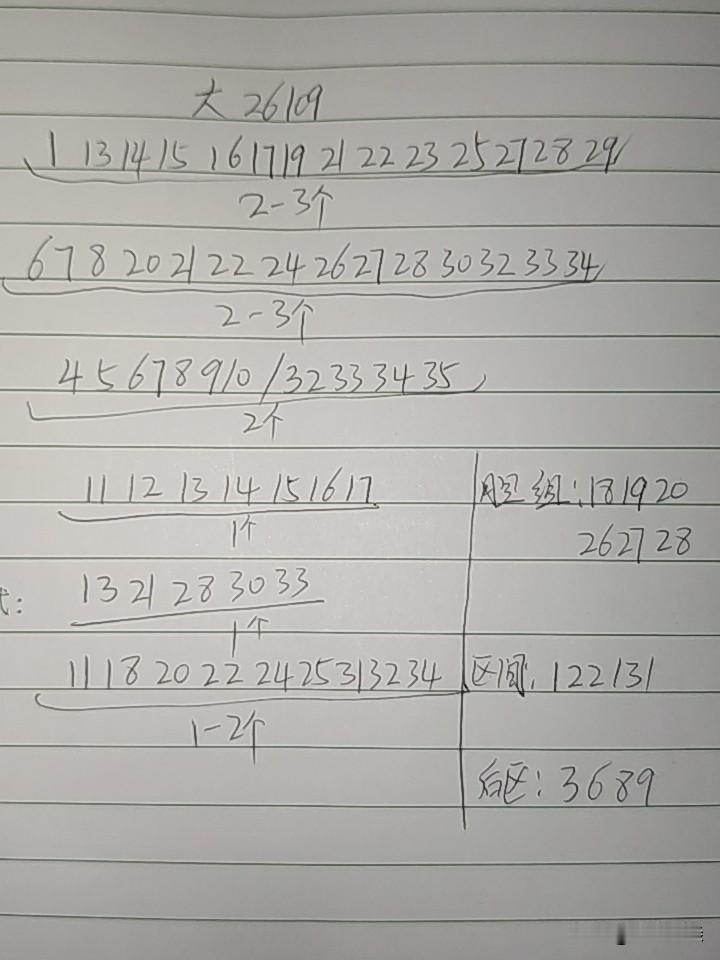 大 26109
1 13 14 15 16 17 19 21 22 23 25 27 28 29
2-3个
6 7 8 20 21 22 24 26 27 28 30 32 33 34
2-3个
4 5 6 7 8 9 10 / 32 33 34 35
2个
11 12 13 14 15 16 17
1个
胆组: 18 19 20
26 27 28
13 21 28 30 33
1个
11 18 20 22 24 25 31 32 34
1-2个
区间: 122 131
后区: 3 6 8 9